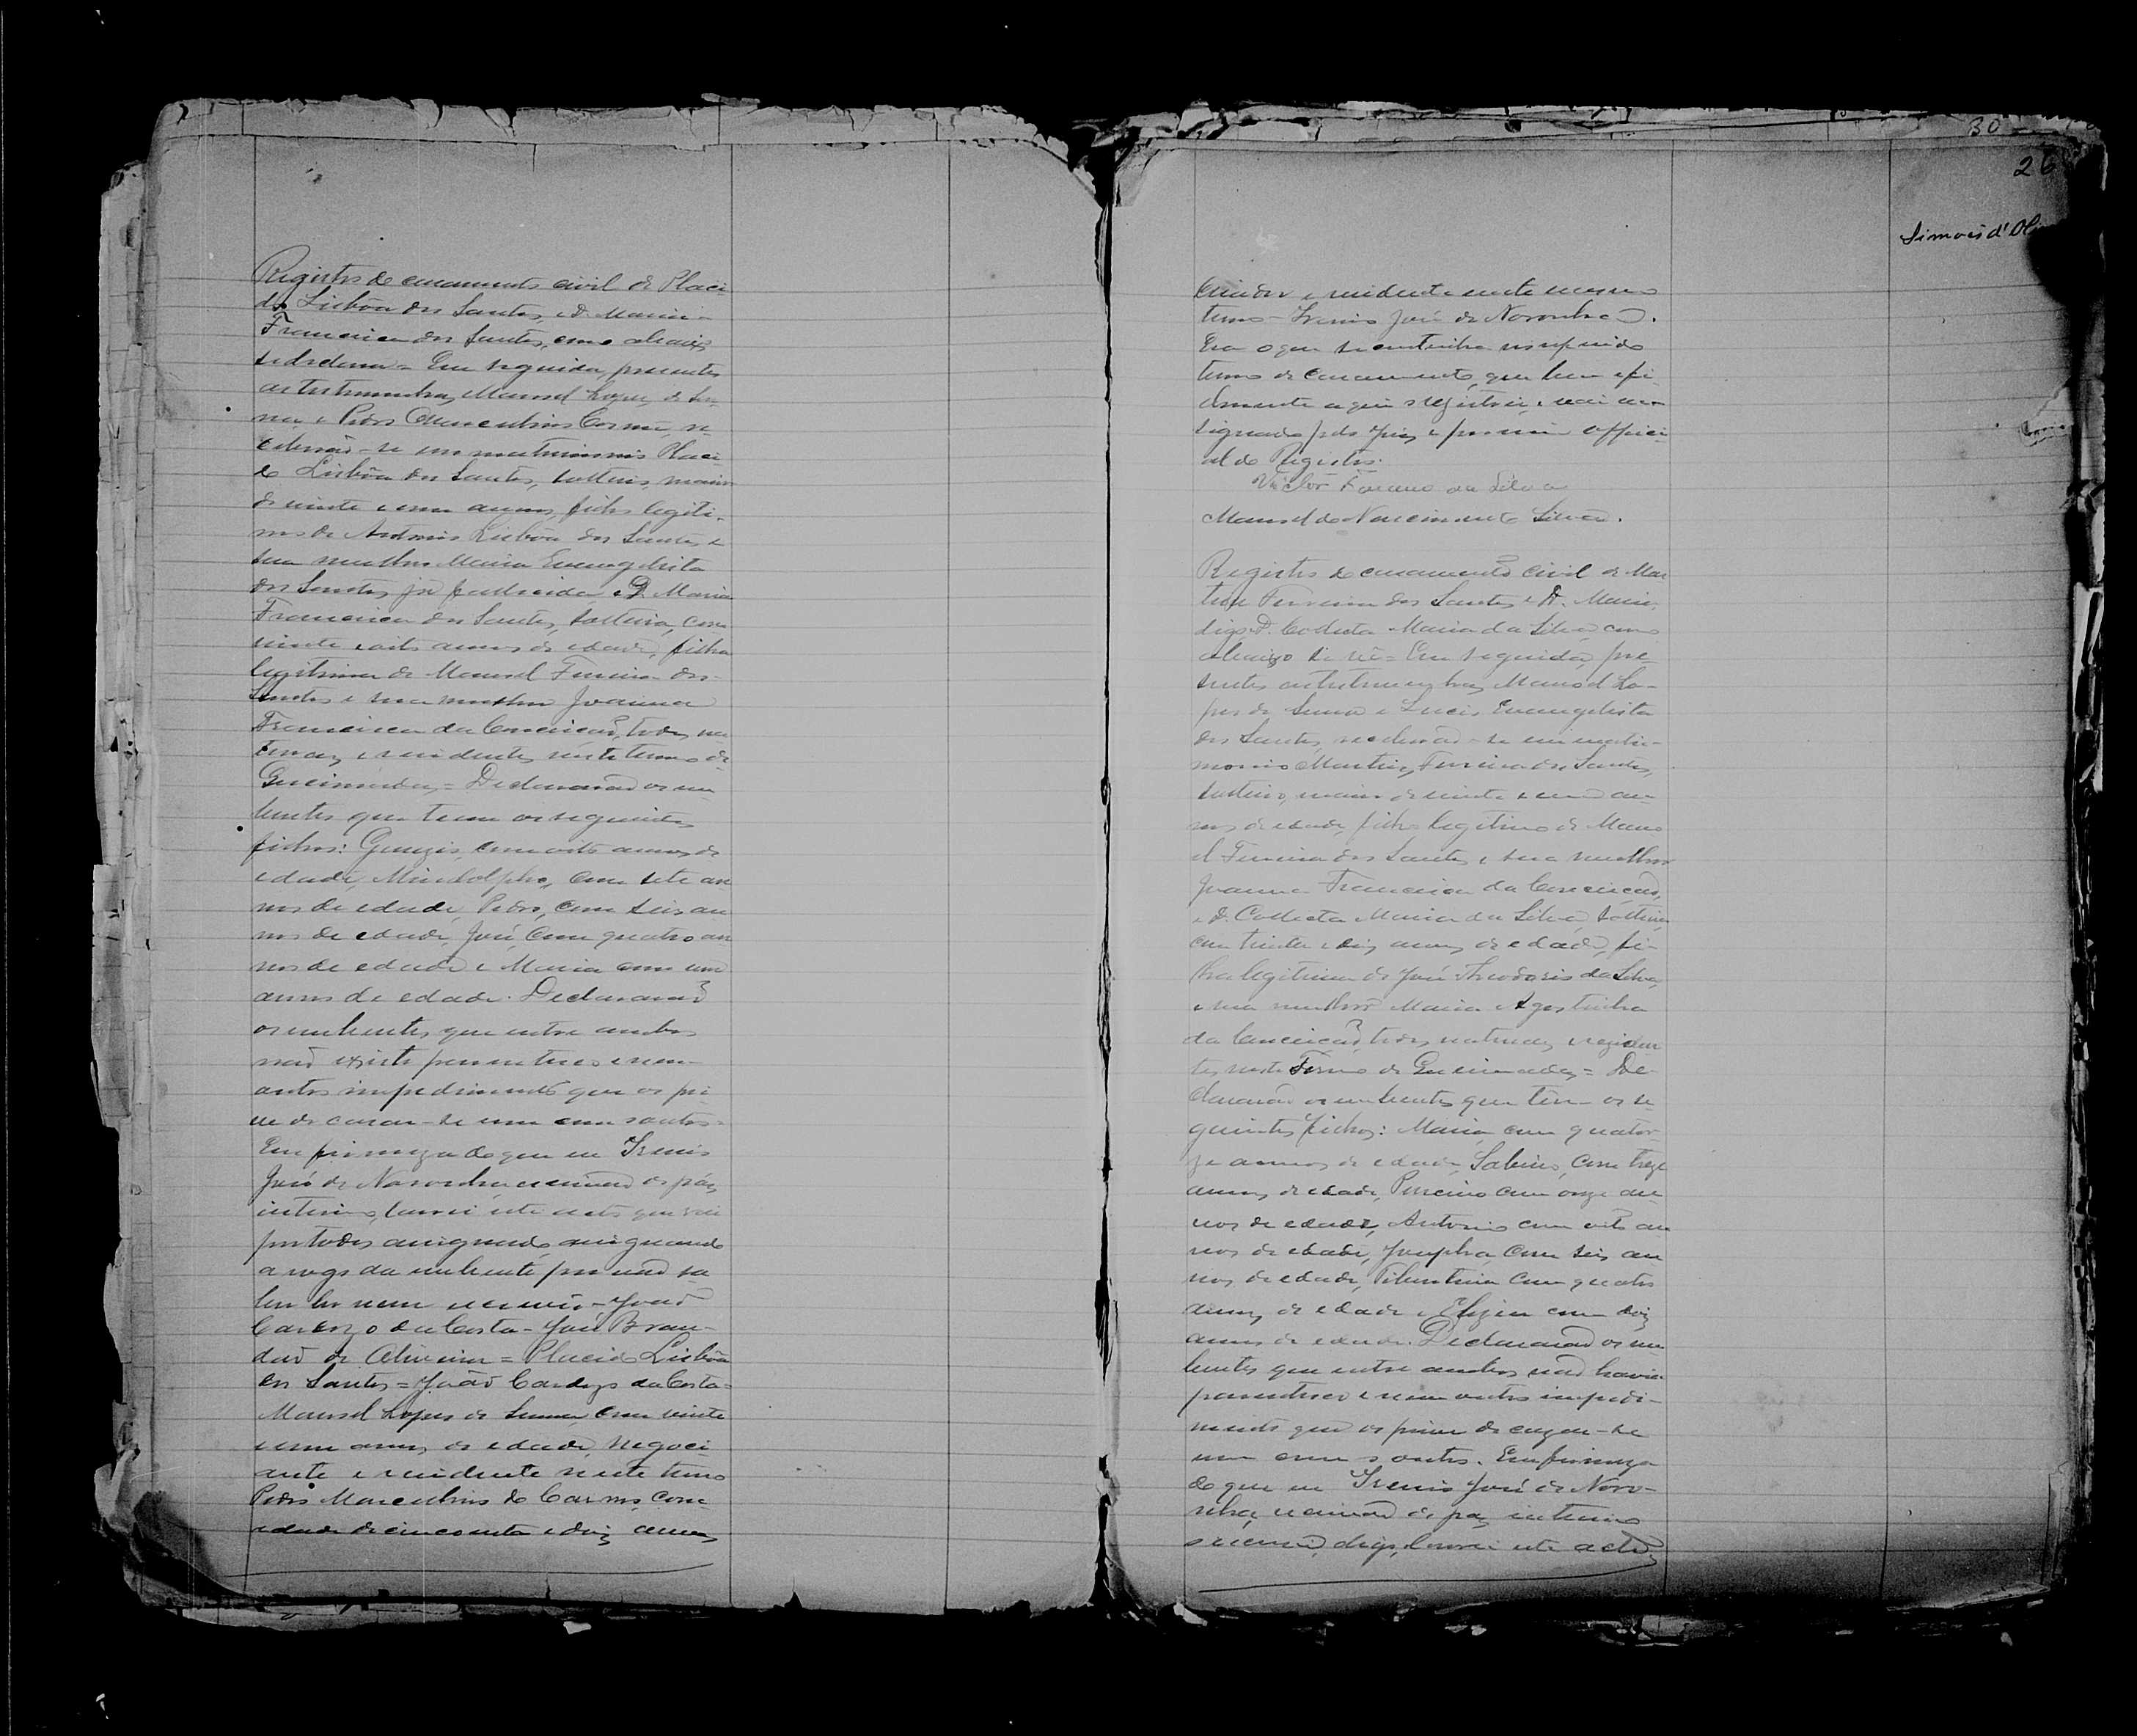 Registro de casamento civil de Placi-
do Lisbôa dos Santos e D. Maria
Francisca dos Santos, como abaixo
se declara = Em seguida, presentes
as testemunhas, Manoel Lopes de Su-
na e Pedro Marcellino Carmo, re-
ceberão-se em matrimonio Placi-
do Lisbôa dos Santos, solteiro, maior
de vinte e um annos, filho legiti-
mo de Antonio Lisbôa dos Santos e
sua mulher Maria Evangelista
dos Santos, já fallecida e D. Maria
Francisca dos Santos, solteira, com
vinte e oito annos de edade, filha
legitima de Manoel Ferreira dos
Santos e sua mulher Joanna
Francisca da Conceição, todos na-
turaes e residentes neste termo de
Queimadas = Declararão os nu-
bentes que teem os seguintes
filhos: com oito annos de
edade, Mindolpho, com sete an
nos de edade, Pedro, com seis an
nos de edade, José, com quatro an
nos de edade e Maria com um
annos de edade. Declararaõ
os nubentes que entre ambos
naõ existe parentesco e nem
outro impedimento que os pri
ve de casar-se um com o outro =
Em firmeza do que eu Irenio
José de Noronha escrivaõ de paz,
interino, lavrei este acto que vai
por todos assignado, assignando
a rogo da nubente por naõ sa
ber ler nem escrever - Joaõ
Cardozo da Costa - José Bran-
daõ de Oliveira = Placido Lisbôa
dos Santos = Joaõ Cardozo da Costa =
Manoel Lopes de Sunna, com vinte
e um annos de edade, negoci
ante e residente neste termo
Pedro Marcellino do Carmo, com
edade de cincoenta e dois annos
30
26
Simões d'Oli
criador e residente neste mesmo
termo - Irenio José de Noronha.
Era o que se continha no referido
termo de casamento, que bem e fi-
elmente aqui registrei, e vai as-
signado pelo Juiz e por mim offici-
al do Registro.
Victor da Silva
Manoel do Nascimento Silva.
Registro de casamento civil de Mar
tins Ferreira dos Santos e D. Maria,
digo, D. Collecta Maria da Silva, como
abaixo se vê = Em seguida, pre-
sentes as testemunhas, Manoel Lo-
pes de Sunna e Lucio Evangelista
dos Santos, receberaõ-se em matri-
monio Martins Ferreira dos Santos,
solteiro, maior de vinte e um an-
nos de edade, filho legitimo de Mano
el Ferreira dos Santos e sua mulher
Joanna Francisca da Conceiçaõ,
e D. Collecta Maria da Silva, solteira,
com trinta e dois annos de edade, fi-
lha legitima de José Theodorio da Silva,
e sua mulher Maria Agostinha
da Conceiçaõ, todos naturaes e residen
tes neste Termo de Queimadas = De-
clararaõ os nubentes que têm os se
guintes filhos: Maria, com quator-
ze annos de edade, Sabino, com treze
annos de edade, com onze an
nos de edade, Antonio com oito an
nos de edade, Josepha, com seis an
nos de edade, com quatro
annos de edade e com dois
annos de edade. Declararaõ os nu
bentes que entre ambos naõ havia
parentesco e nem outro impedi-
mento que os prive de cazar-se
um com o outro. Em firmeza
do que eu Irenio José de Noro-
nha, escrivaõ de paz interino
o escrevi, digo, lavrei este acto,